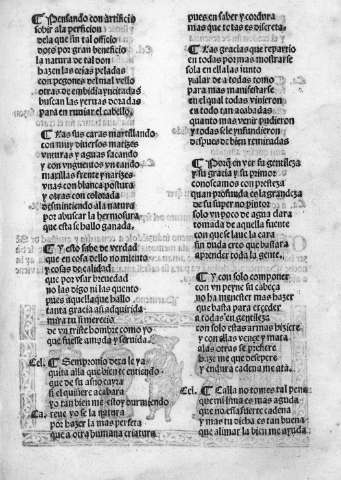 ¶ Pensando con artificio
sobir ala perficion
dela que sin tal officio
doto por gran beneficio
la natura de tal don
hazen las cejas peladas
con pegones del mal vello
otras de embidia incitadas
buscan las yeruas doradas
para en ruuiar el cabello.
¶ Las sus caras martillando
con muy diuersos matizes
vnturas y aguas sacando
y con vnguentos vntando
maxillas frente y narizes
vnas con blanca postura
y otras con colorada
desmintiendo ala natura
por abuscar la hermosura
que esta se ballo ganada.
¶ Y esto sabe de verdad
que en cosa dello no micito
y cosas de calidad
que por vsar breuedad
no las digo ni las quento
pues aquella que hallo
tanta gracia añadquirida
mira tu si merecio
de vn triste hombre como yo
que fuesse amada y seruida.
Cel. ¶ Sempronio dexa le ya
quita alla que bien te entiendo
que de su asno cayra
si el quisiere acabara
yo tan bien me estoy durmiendo
Ca. reue yo se la natura
por hazer la mas perfeta
que a otra humana criatura
pues en saber y cordura
mas que todas es discreta.
¶ Las gracias que repartio
en todas por mas mostrarse
sola en ella las junto
y alas de a todas tomo
para mas manifestarse
en el qual todas vinieron
en todo tan acabadas
quanto mas venir pudieron
y todas se le infundieron
despues de bien remiradas
¶ Porque en ver su gentileza
y su gracia y su primor
conoscamos con presteza
quan profunda es la grandeza
de su supemo pintor
solo vn poco de agua clara
tomada de aquella fuente
con que se laue la cara
sin duda creo que bastara
aprender toda la gente.
¶ Y con solo componer
con vn peyne su cabeça
no ha menester mas hazer
que basta para exceder
a todas en gentileza
con solo estas armas biziere
y con ellas vence y mata
alas otras se prefiere
haze me que desespere
y endura cadena me ata.
Cel. ¶ Calla no tomes tal pena
que mi lima es mas aguda
que no essa fuerte cadena
y mas tu dicha es tan buena
que alimar la bien me ayuda